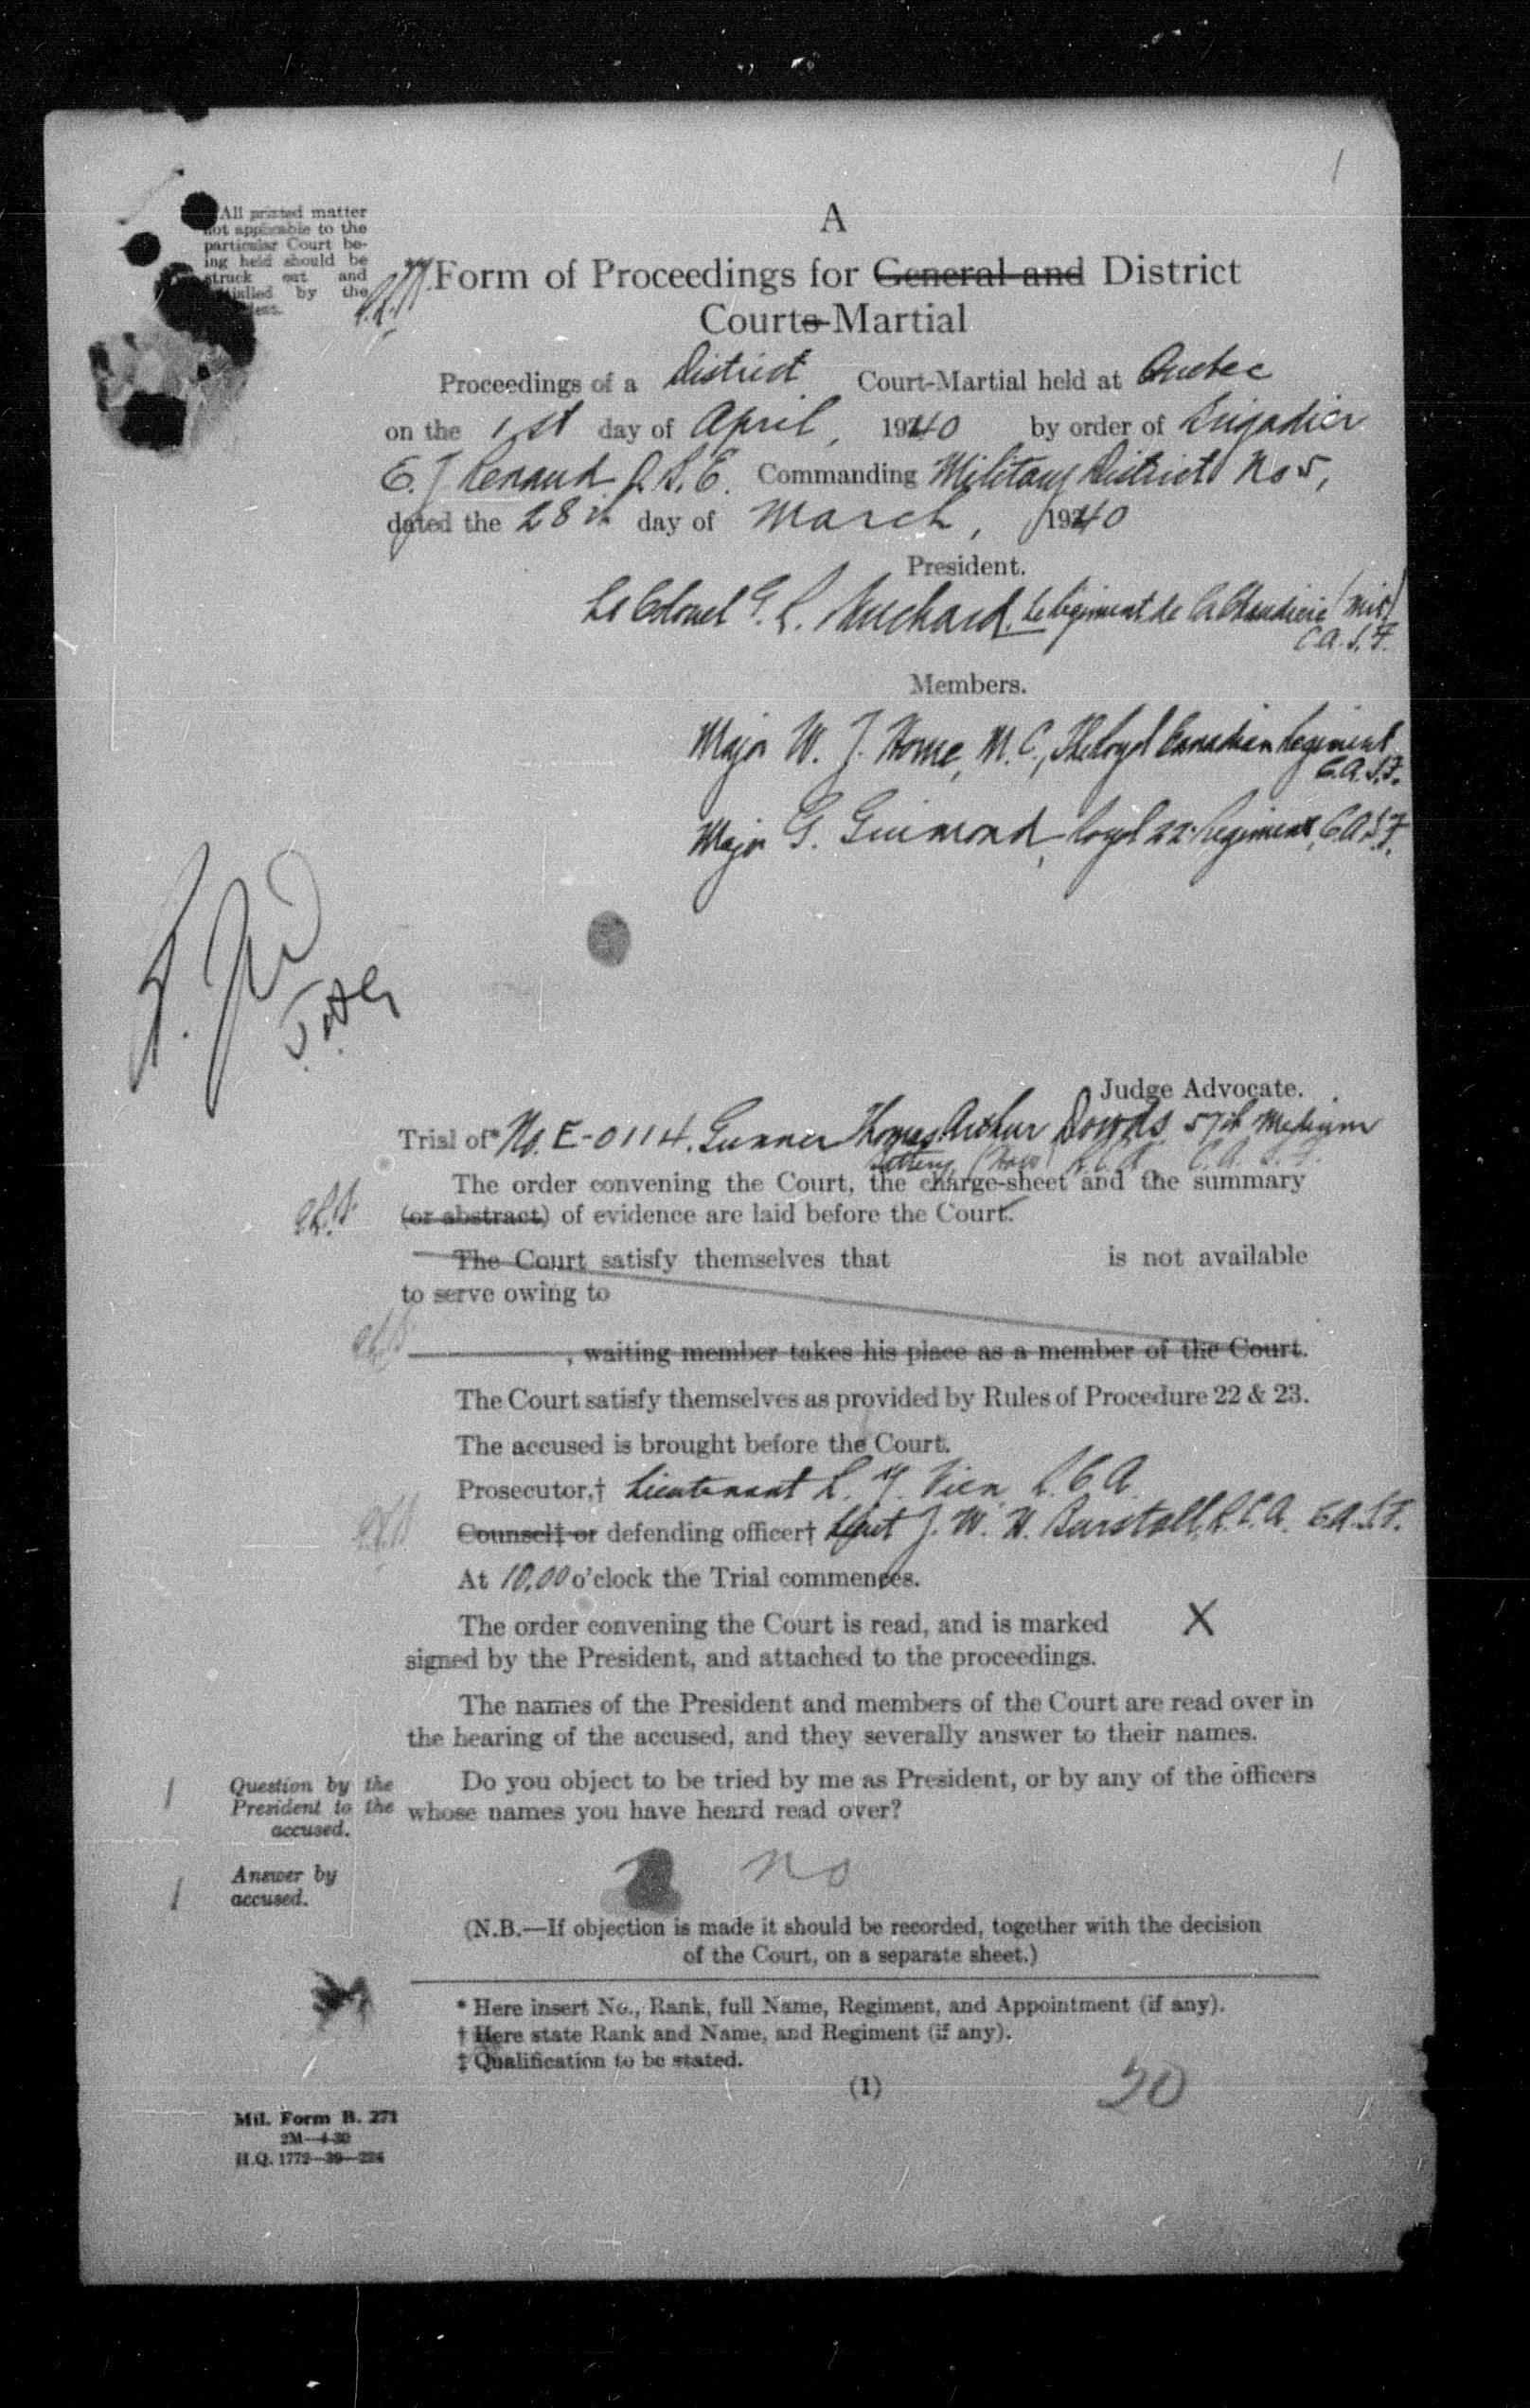 1
A
All printed matter
not applicable to the
particular Court be-
ing held should be
struck out and
initialled by the
Form of Proceedings for General and District
Courts-Martial
Proceedings of a District Court-Martial held at Quebec
on the 1st day of April, 1940 by order of Brigadier
E. J. Renaud Commanding Military District No 5,
dated the 28th day of March, 1940
President.
Lt Colonel G. R. Le Régiment de la Chaudière (Mit)
C.A.S.F.
Members.
Major W. J. Home, M.C., The Royal Canadian Regiment
C.A.S.F.
Major G. Guimond, Royal 22e Regiment, C.A.S.F.
Judge Advocate.
Trial of* No. E-0114. Gunner Thomas Arthur Dowds 57th Medium
Battery, (How) R.C.A. C.A.S.F.
The order convening the Court, the charge-sheet and the summary
(or abstract) of evidence are laid before the Court.
The Court satisfy themselves that is not available
to serve owing to
, waiting member takes his place as a member of the Court.
The Court satisfy themselves as provided by Rules of Procedure 22 & 23.
The accused is brought before the Court.
Prosecutor,† Lieutenant L. Y. Vien, R.C.A.
Counsel‡ or defending officer† Lieut J. W. H. Burstall, R.C.A. C.A.S.F.
At 10.00 o'clock the Trial commences.
The order convening the Court is read, and is marked X
signed by the President, and attached to the proceedings.
The names of the President and members of the Court are read over in
the hearing of the accused, and they severally answer to their names.
1 Question by the
President to the
accused.
Do you object to be tried by me as President, or by any of the officers
whose names you have heard read over?
1 Answer by
accused.
No
(N.B.—If objection is made it should be recorded, together with the decision
of the Court, on a separate sheet.)
* Here insert No., Rank, full Name, Regiment, and Appointment (if any).
† Here state Rank and Name, and Regiment (if any).
‡ Qualification to be stated.
(1)
50
Mil. Form B. 271
2M—4-30
H.Q. 1772—39—224